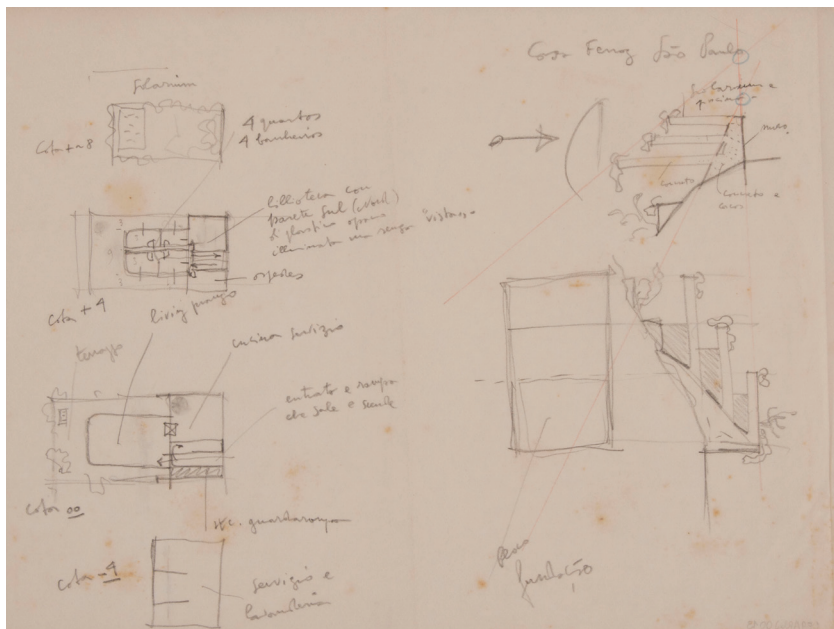 Solarium
cota + 8
4 quartos
4 banheiros
biblioteca con
parete sul (nord)
di plastica opaca
illuminata ma senza "vista"
ospedes
cota + 4
living pranzo
terrazzo
cucina servizio
entrata e rampa
che sale e scende
cota 00
w.c. guardaroupa
cota - 4
servizio e
lavanderia
Casa Ferraz São Paulo
Solarium e
piscina
muro
concreto e
fundação